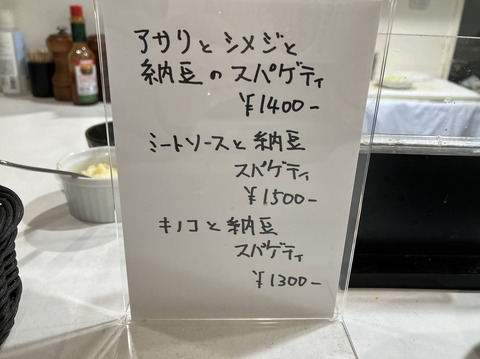 アサリとシメジと
納豆のスパゲティ
¥1400-
ミートソースと納豆
スパゲティ
¥1500-
キノコと納豆
スパゲティ
¥1300-